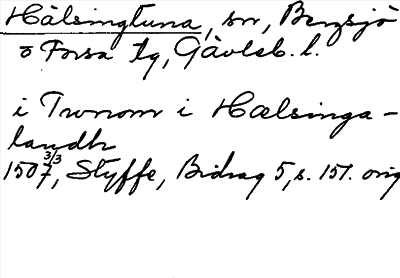 Hälsingtuna, sn, Bergsjö
o Forsa tg, Gävleb. l.
i Tunom i Hælsinga-
landh
1507 3/3, Styffe, Bidrag 5, s. 151. orig